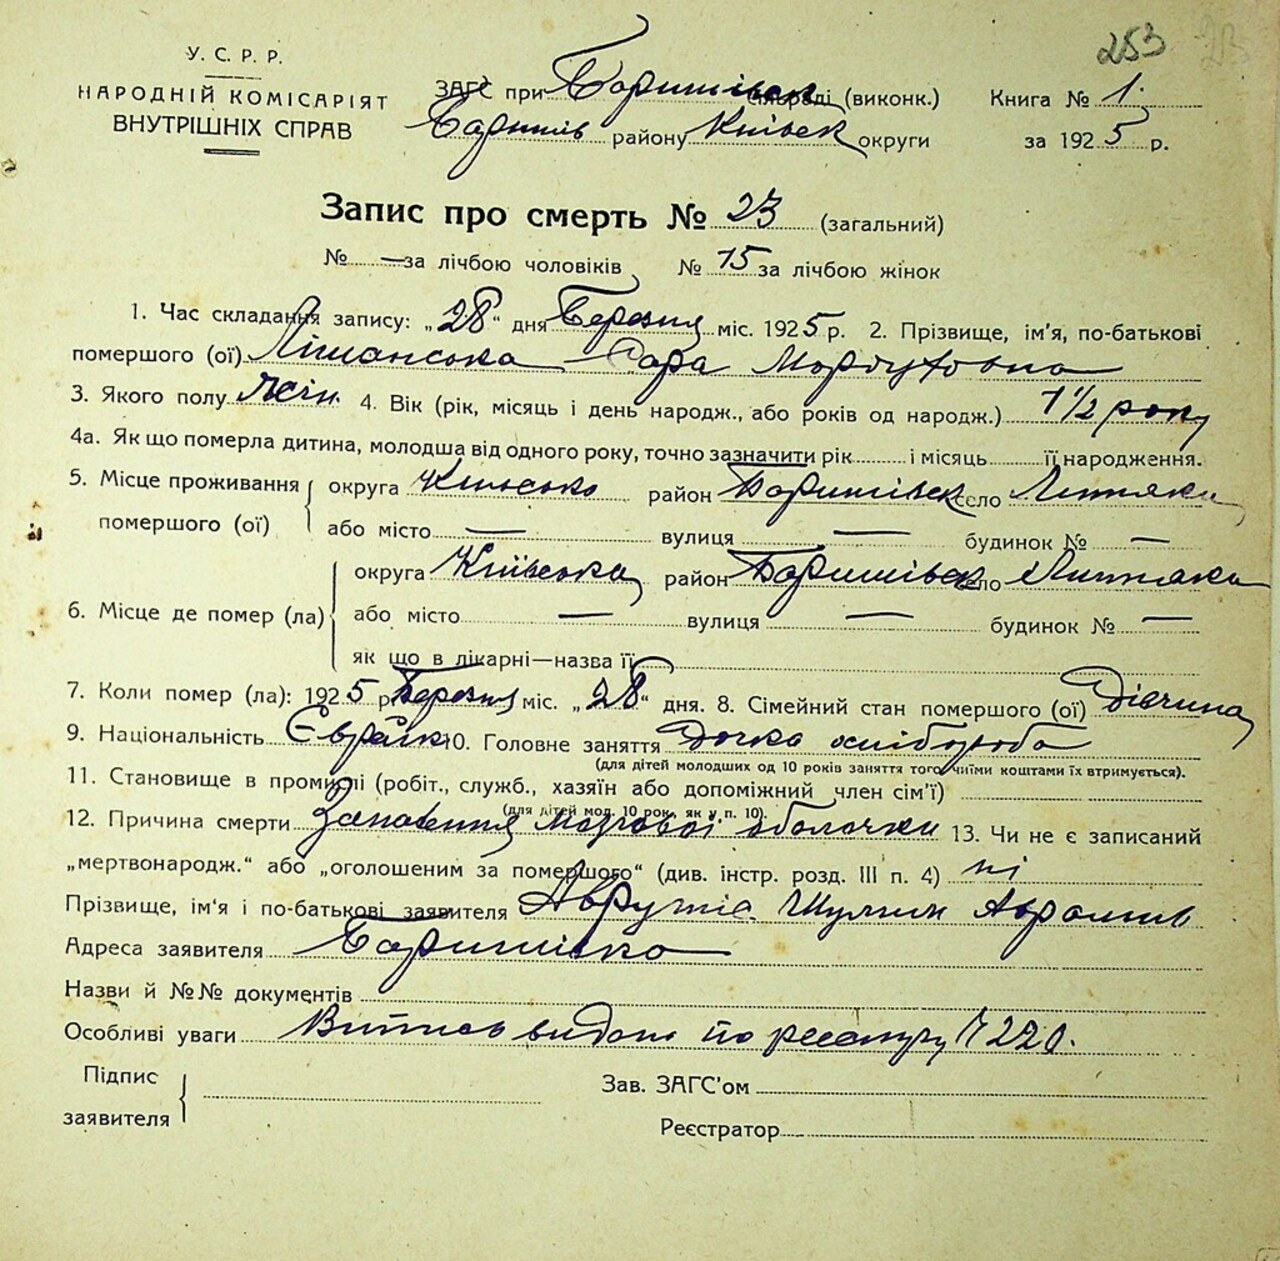 253
У. С. Р. Р.
НАРОДНІЙ КОМІСАРІЯТ
ВНУТРІШНІХ СПРАВ
ЗАГС при Баришівськ сільраді (виконк.) Книга № 1.
району Київськ округи за 1925 р.
Запис про смерть № 23 (загальний)
№ — за лічбою чоловіків № 15 за лічбою жінок
1. Час складання запису: „28“ дня Березня міс. 1925 р. 2. Прізвище, ім'я, по-батькові
помершого (ої) Ліманська Сара Мордуховна
3. Якого полу жін. 4. Вік (рік, місяць і день народж., або років од народж.) 1 1/2 року
4а. Як що померла дитина, молодша від одного року, точно зазначити рік і місяць її народження.
5. Місце проживання округа район Баришівськ село
помершого (ої) або місто — вулиця — будинок № —
округа Київська район Баришівськ село
6. Місце де помер (ла) або місто — вулиця — будинок № —
як що в лікарні—назва її
7. Коли помер (ла): 1925 р. Березня міс. „28“ дня. 8. Сімейний стан помершого (ої) Дівчина
9. Національність Єврейк 10. Головне заняття Дочка хлібороба
(для дітей молодших од 10 років заняття того чиїми коштами їх втримується).
11. Становище в промислі (робіт., служб., хазяїн або допоміжний член сім'ї)
(для дітей мол. 10 рок. як у п. 10).
12. Причина смерти Запалення мозгової оболочки 13. Чи не є записаний
„мертвонародж.“ або „оголошеним за помершого“ (див. інстр. розд. III п. 4) ні
Прізвище, ім'я і по-батькові заявителя
Адреса заявителя Баришівка
Назви й №№ документів
Особливі уваги Випись видат по реестру № 220.
Підпис Зав. ЗАГС'ом
заявителя
Реєстратор